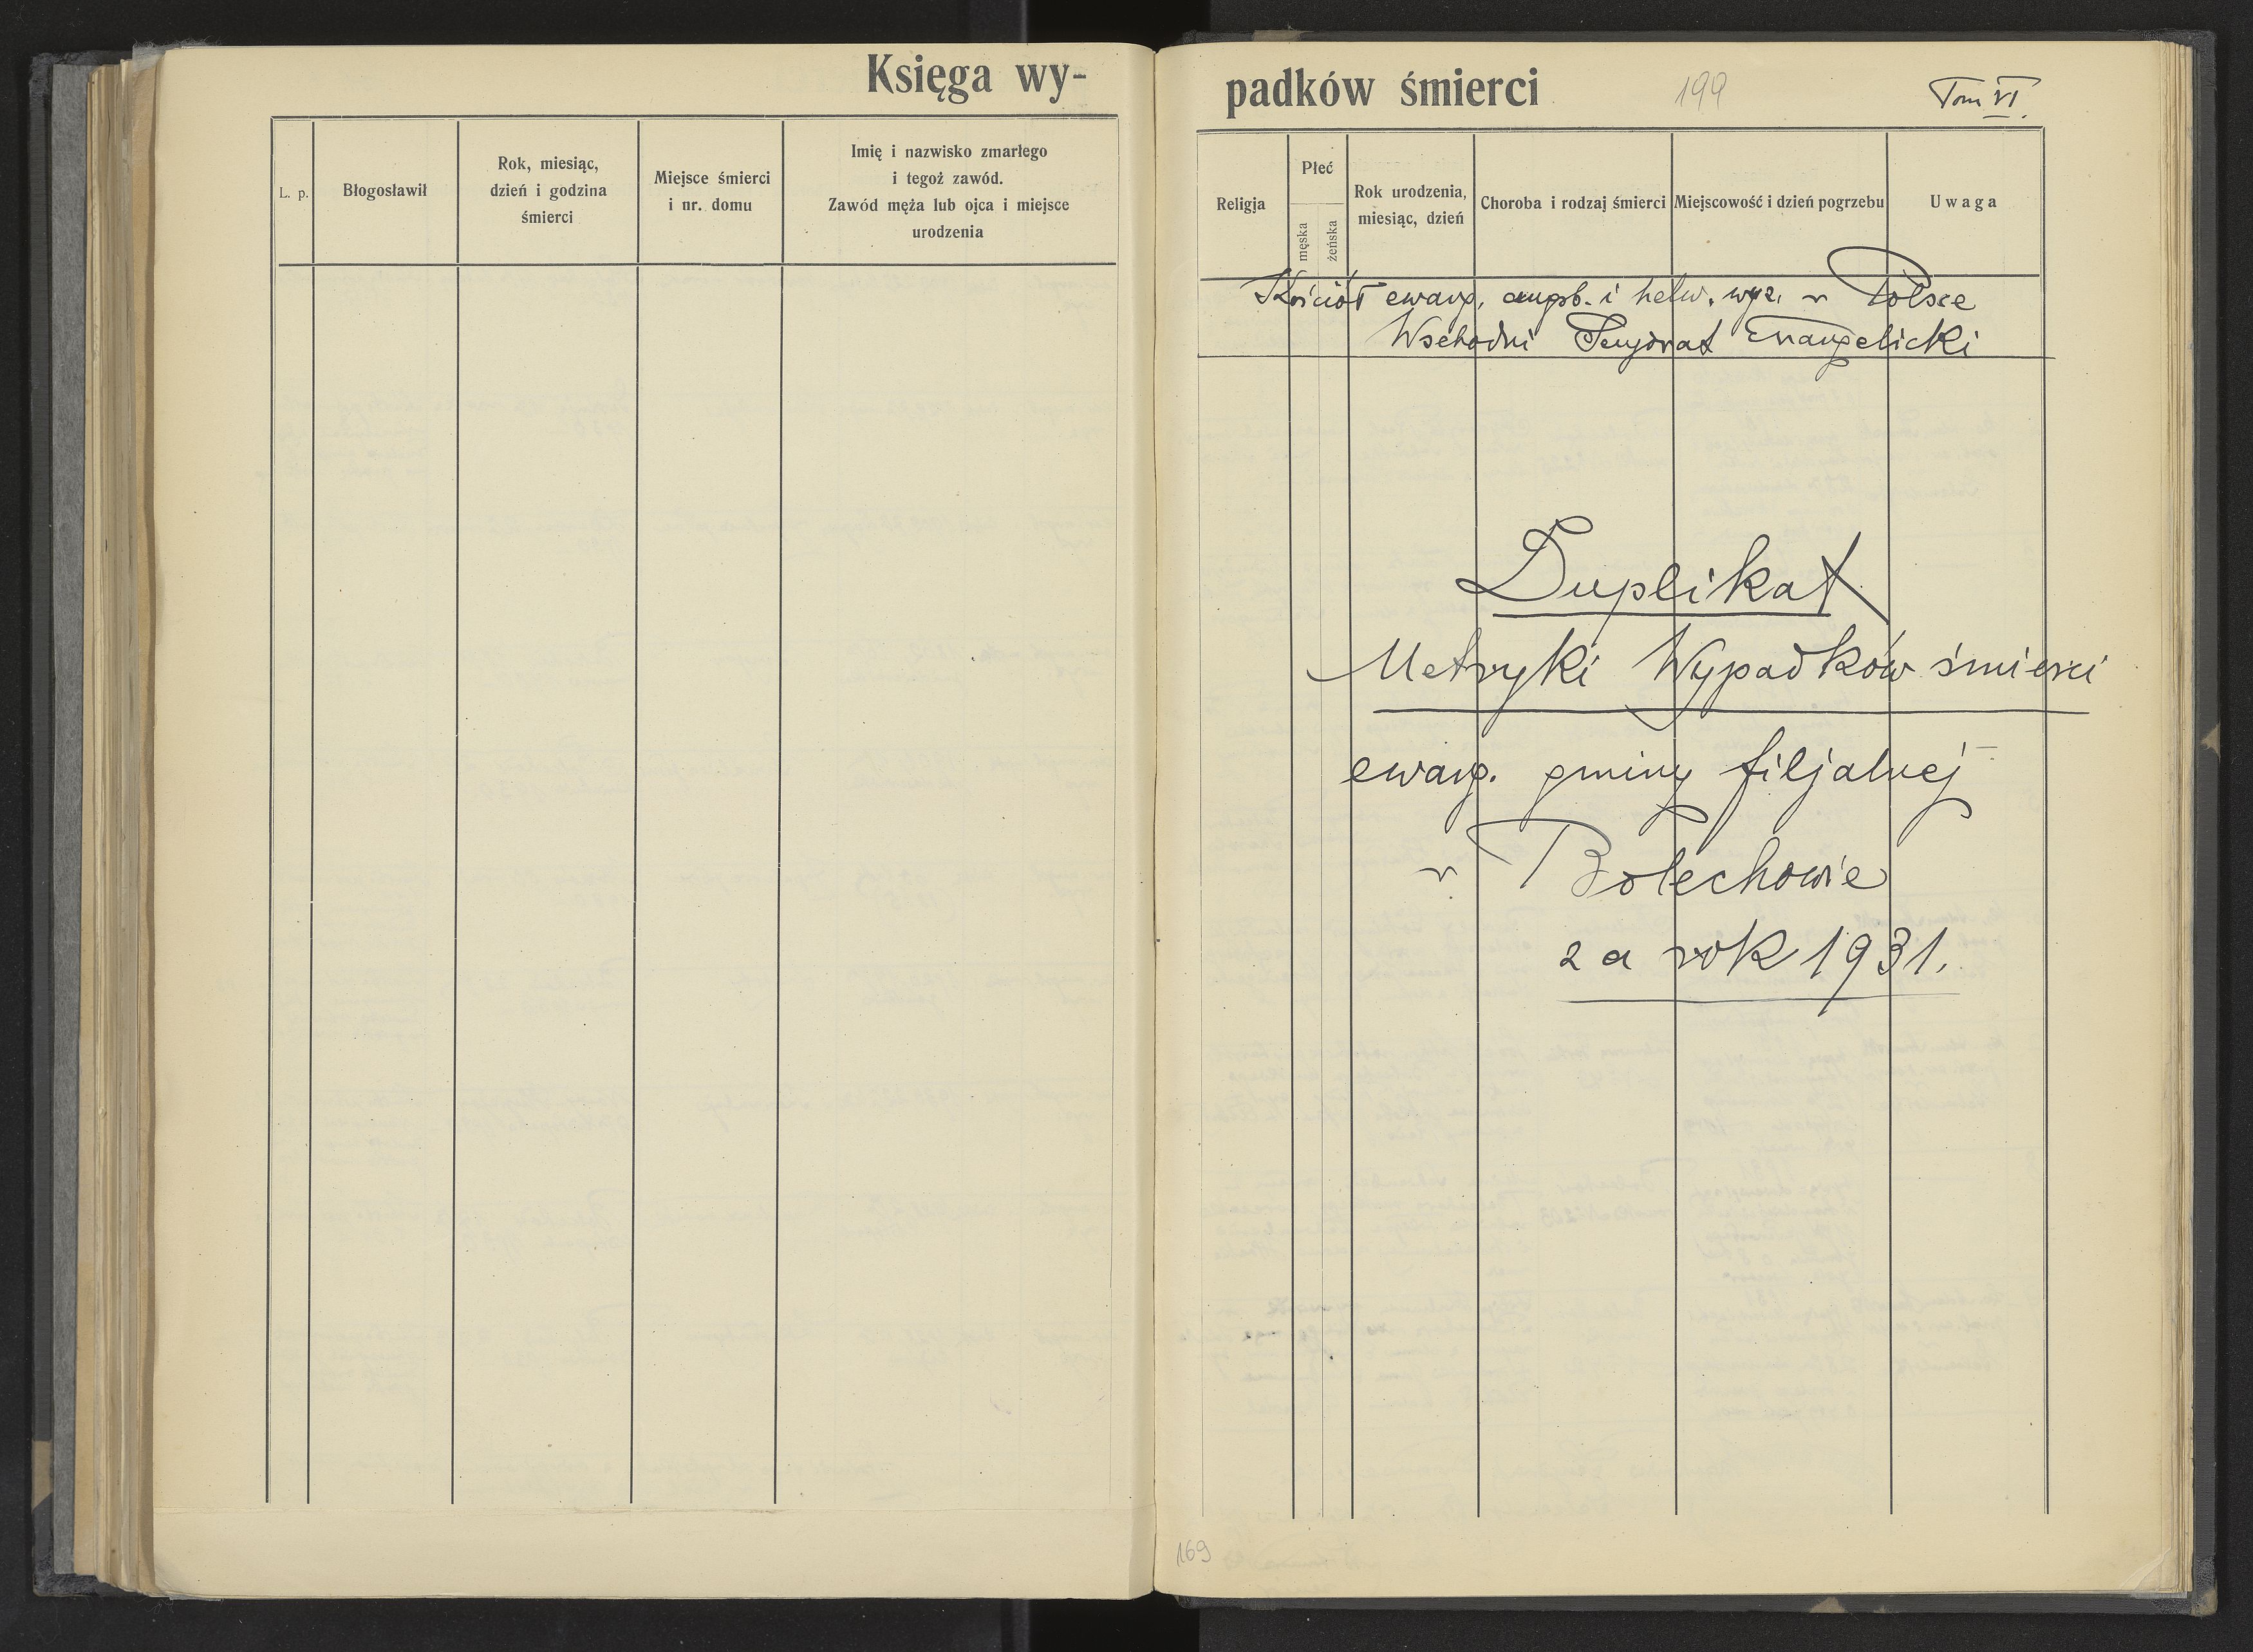 Księga wy-
L. p.
Błogosławił
Rok, miesiąc,
dzień i godzina
śmierci
Miejsce śmierci
i nr. domu
Imię i nazwisko zmarłego
i tegoż zawód.
Zawód męża lub ojca i miejsce
urodzenia
padków śmierci
199
Tom VI.
Religja
Płeć
męska
żeńska
Rok urodzenia,
miesiąc, dzień
Choroba i rodzaj śmierci
Miejscowość i dzień pogrzebu
Uwaga
Kościół ewang. augsb. i helw. wyz. w Polsce
Wschodni Senjorat Ewangelicki
Duplikat
Metryki Wypadków śmierci
ewang. gminy filjalnej
w Bolechowie
za rok 1931.
169